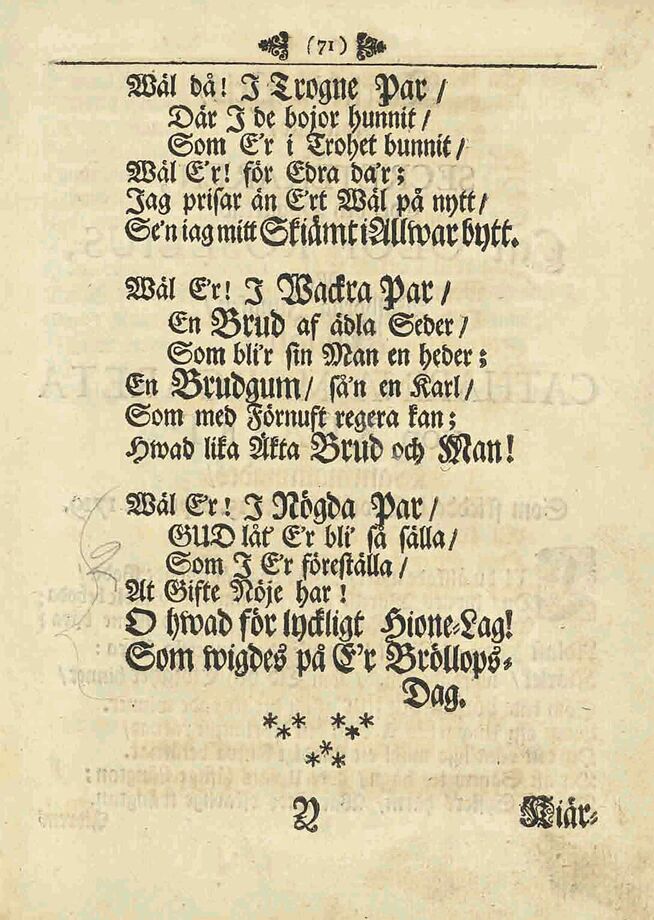 (71)
Wäl då! I Trogne Par /
Där I de bojor hunnit /
Som E'r i Trohet bunnit /
Wäl E'r! för Edra da'r;
Jag prisar än E'rt Wäl på nytt /
Se'n iag mitt Skiämt i Allwar bytt.
Wäl Er! I Wackra Par /
En Brud af ädla Seder /
Som bli'r sin Man en heder;
En Brudgum / så'n en Karl /
Som med Förnuft regera kan;
Hwad lika Äkta Brud och Man!
Wäl E'r! I Nögda Par /
GUD låt E'r bli' så sälla /
Som I E'r föreställa /
At Gifte Nöje har!
O hwad för lyckligt Hione-Lag!
Som wigdes på E'r Bröllops-
Dag.
Y
Kiär-